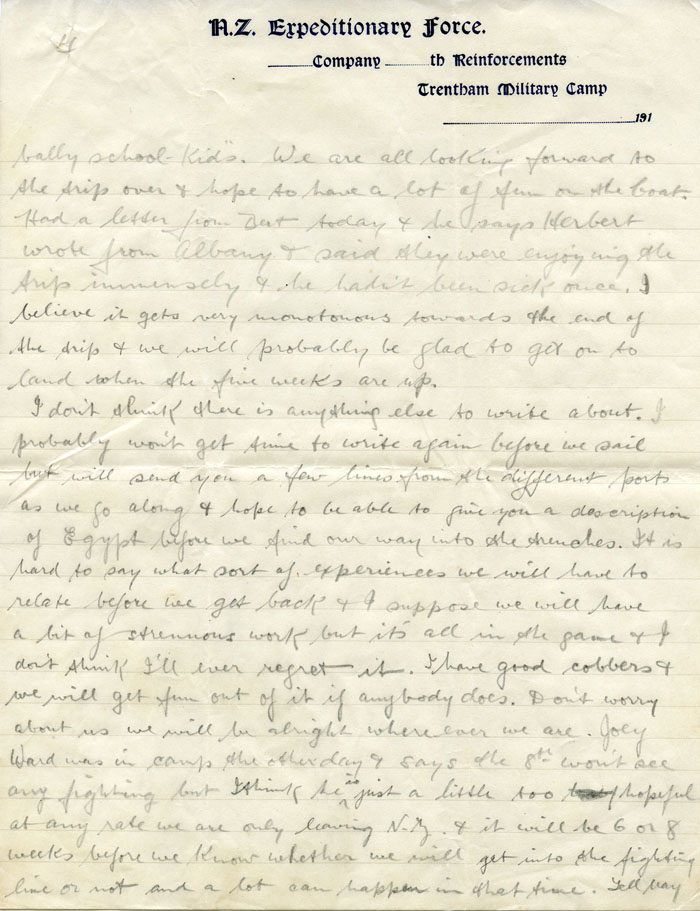 4
N.Z. Expeditionary Force.
Company th Reinforcements
Trentham Military Camp
191
bally school-Kid's. We are all looking forward to
the trip over & hope to have a lot of fun on the boat.
Had a letter from Bert today & he says Herbert
wrote from Albany & said they were enjoying the
trip immensely & he hadn't been sick once. I
believe it gets very monotonous towards the end of
the trip & we will probably be glad to get on to
land when the five weeks are up.
I don't think there is anything else to write about. I
probably won't get time to write again before we sail
but will send you a few lines from the different ports
as we go along & hope to be able to give you a description
of Egypt before we find our way into the trenches. It is
hard to say what sort of experiences we will have to
relate before we get back & I suppose we will have
a bit of strennous work but it's all in the game & I
don't think I'll ever regret it. I have good cobbers &
we will get fun out of it if anybody does. Don't worry
about us we will be alright where ever we are. Joey
Ward was in camp the other day & says the 8th won't see
any fighting but I think he is just a little too hopeful
at any rate we are only leaving N.Z. & it will be 6 or 8
weeks before we know whether we will get into the fighting
line or not and a lot can happen in that time. Tell